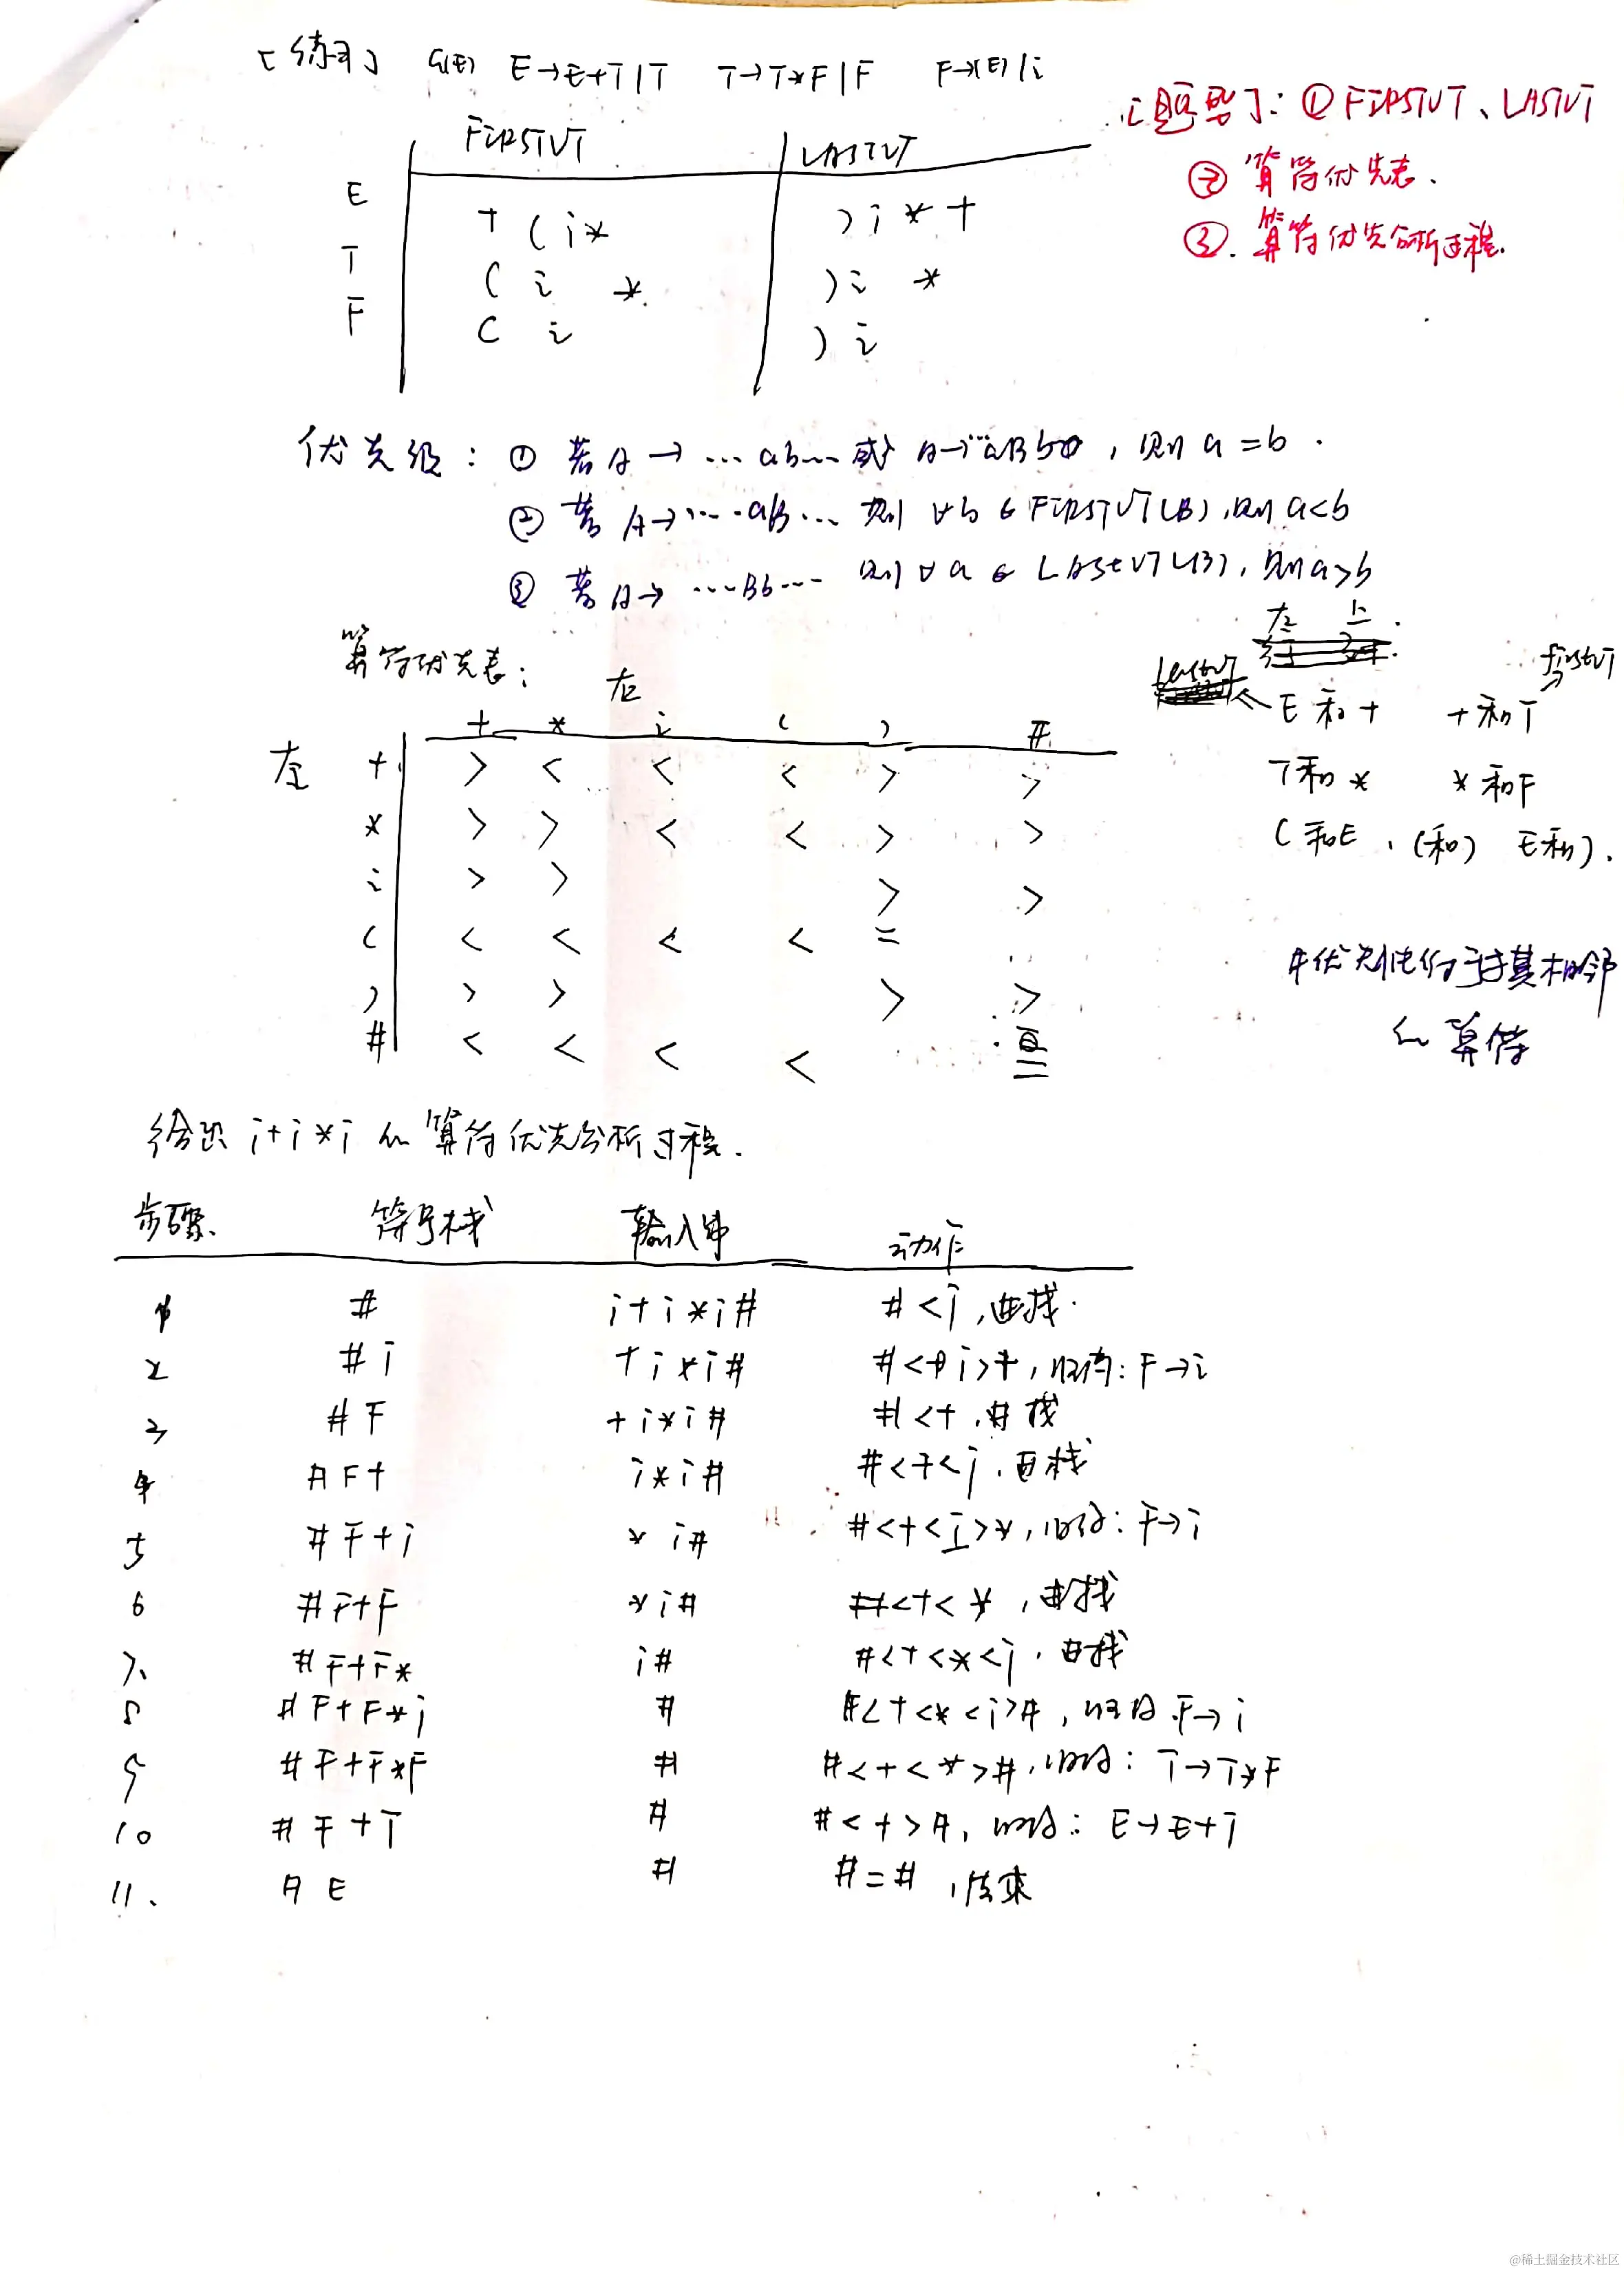 [练习] G(E) E→E+T|T T→T*F|F F→(E)|i
[题型]: ① FIRSTVT、LASTVT
② 算符优先表.
③. 算符优先分析过程.
FIRSTVT LASTVT
E + ( i * ) i * +
T ( i * ) i *
F ( i ) i
优先级: ① 若A→…ab…或A→…aBb…, 则a=b.
② 若A→…aB… 则∀b∈FIRSTVT(B),则a<b
③ 若A→…Bb… 则∀a∈LAStVT(B),则a>b
算符优先表:
右
+ * i ( ) #
左 + > < < < > >
* > > < < > >
i > > > >
( < < < < =
) > > > >
# < < < < =
左 上.
lastvt firstvt
E和+ +和T
T和* *和F
(和E、(和) E和).
#优先性低于与其相邻
的算符
给出 i+i*i 的算符优先分析过程.
步骤 符号栈 输入串 动作
1 # i+i*i# #<i,进栈.
2 #i +i*i# #<i>+,归约:F→i
3 #F +i*i# #<+,进栈
4 #F+ i*i# #<+<i,进栈
5 #F+i *i# #<+<i>*,归约:F→i
6 #F+F *i# #<+<*,进栈
7. #F+F* i# #<+<*<i,进栈
8 #F+F*i # #<+<*<i>#,归约.F→i
9 #F+F*F # #<+<*>#,归约:T→T*F
10 #F+T # #<+>#,归约:E→E+T
11. #E # #=#,结束
@稀土掘金技术社区